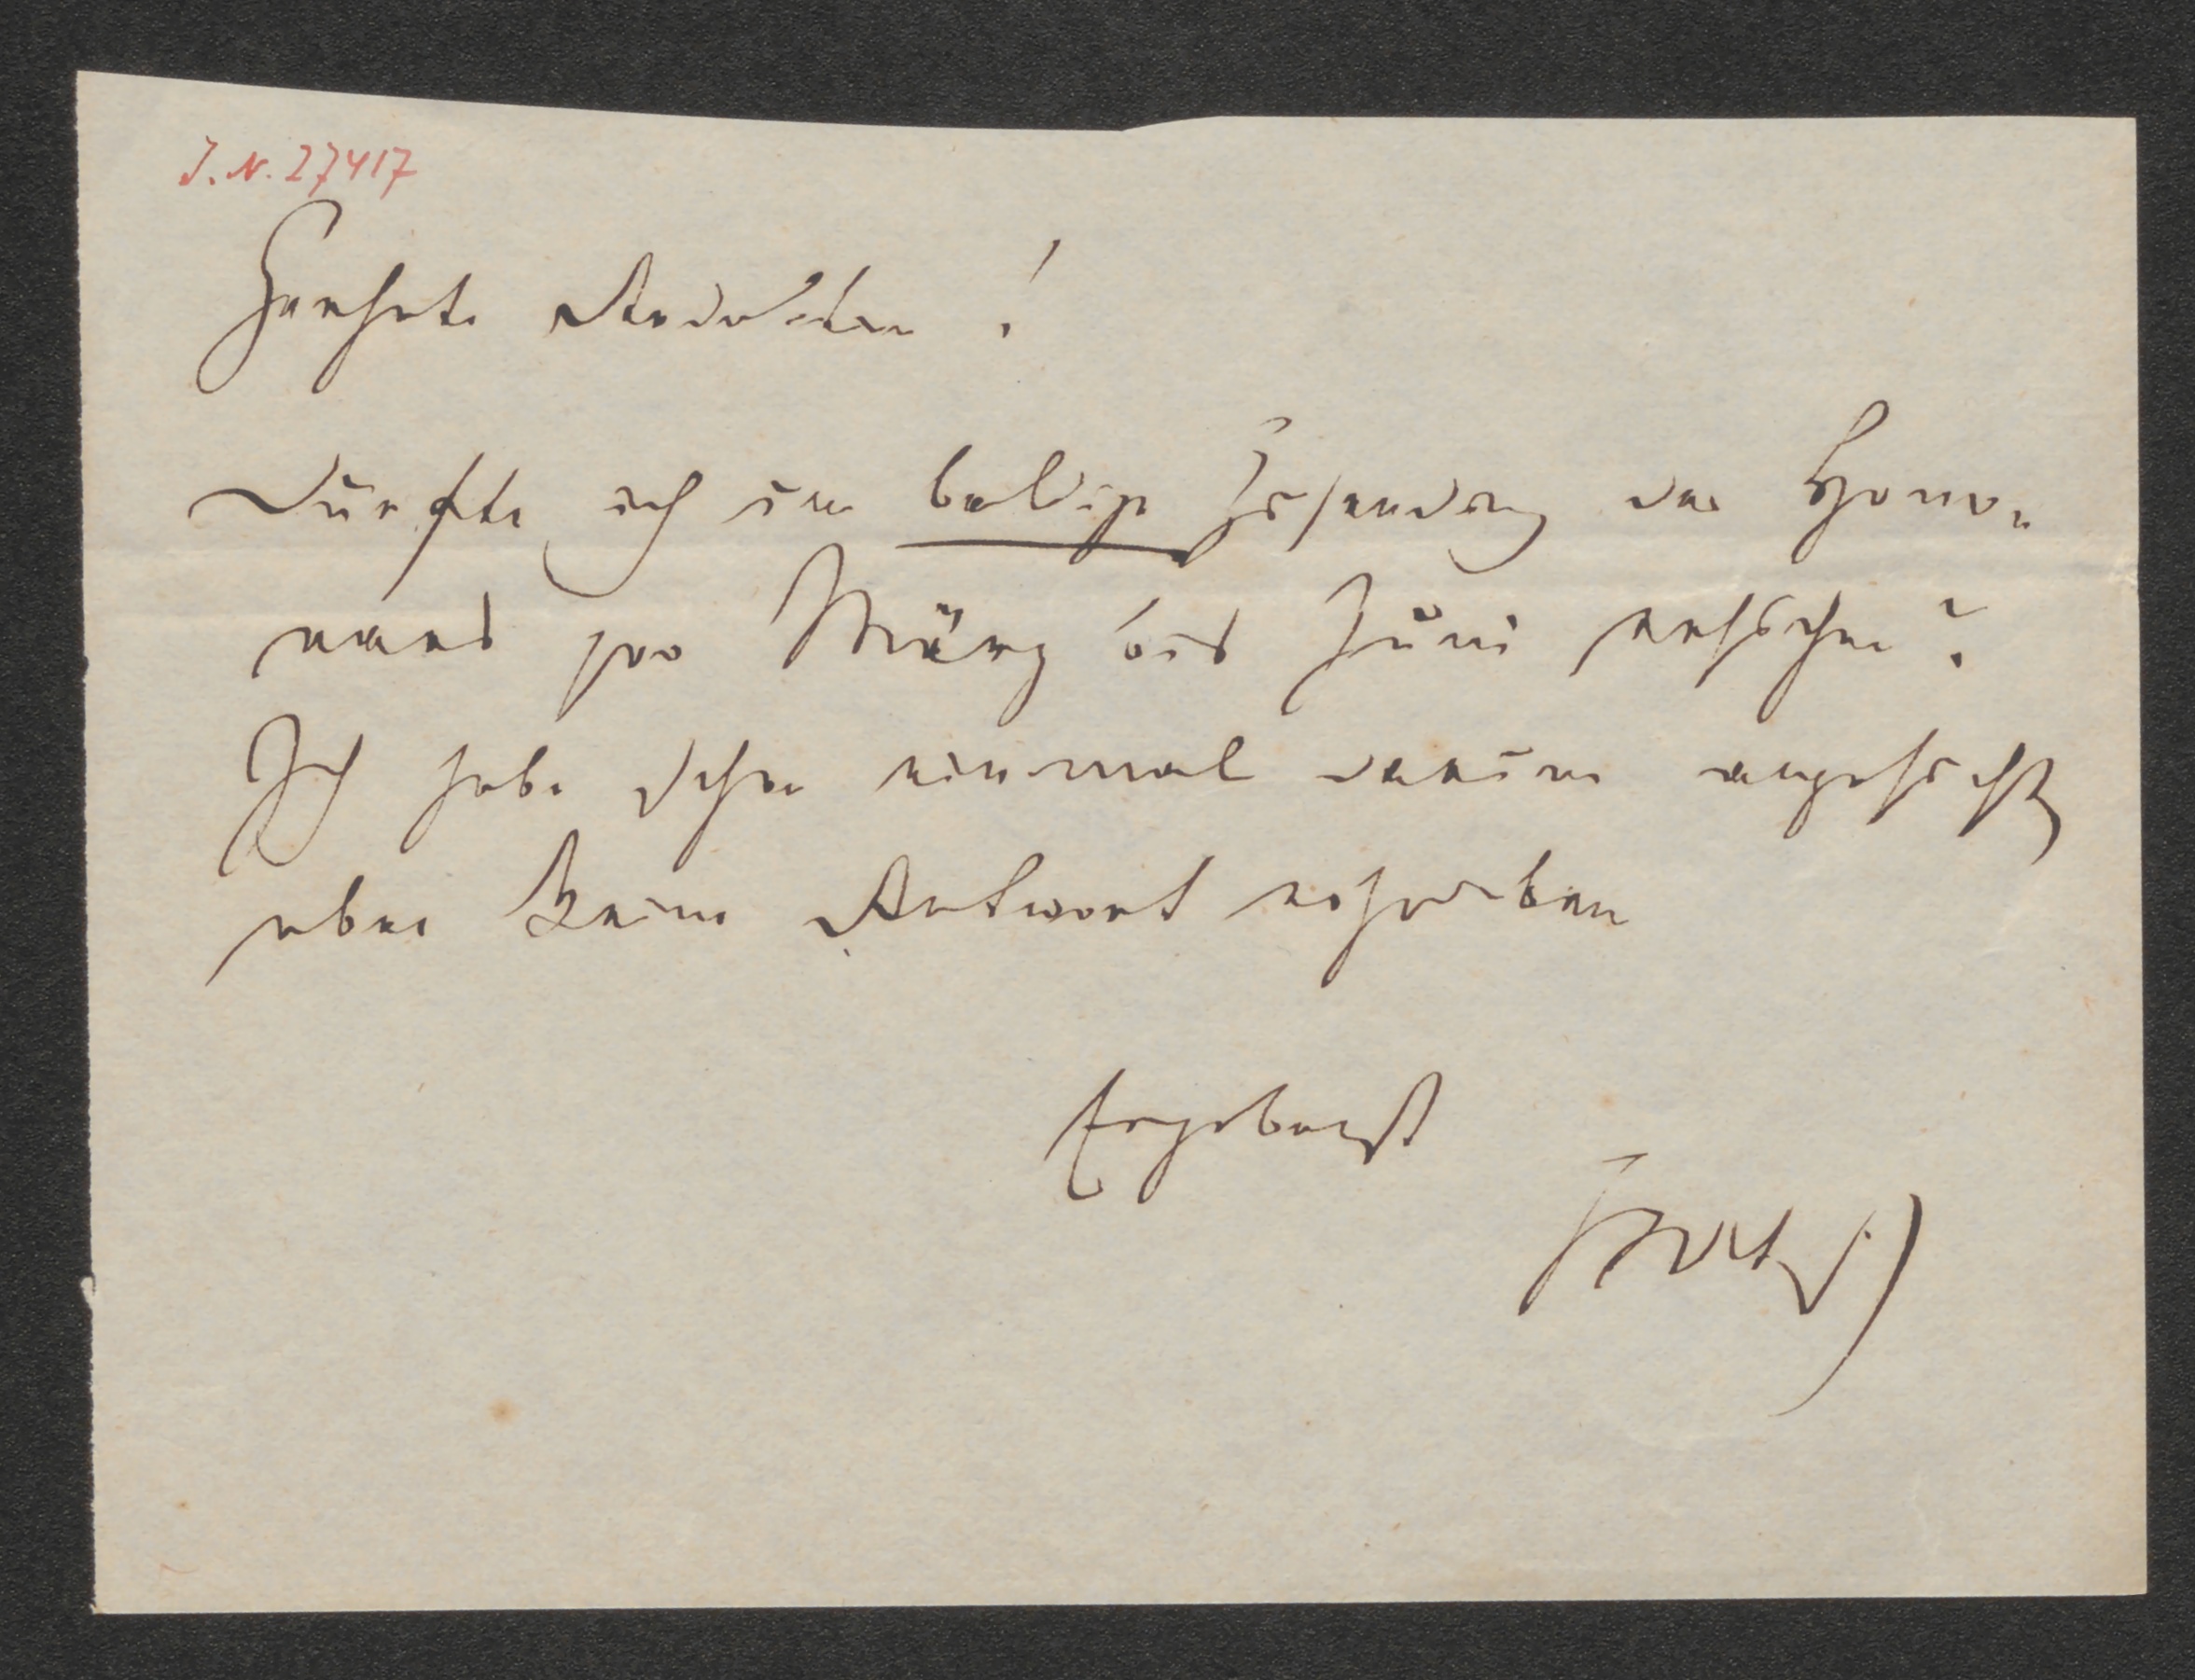 J. N. 27417
Geehrte Redaktion!
dürfte ich um baldige Zusendung des Hono-
rars pro März bis Juni ersuchen?
Ich habe schon einmal darum angesucht,
aber keine Antwort erhalten
Ergebenst